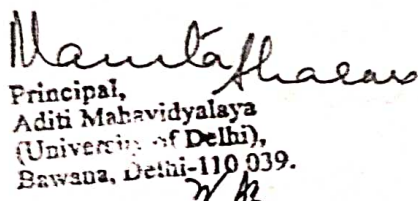 Mamta Sharma
Principal,
Aditi Mahavidyalaya
(University of Delhi),
Bawana, Delhi-110 039.